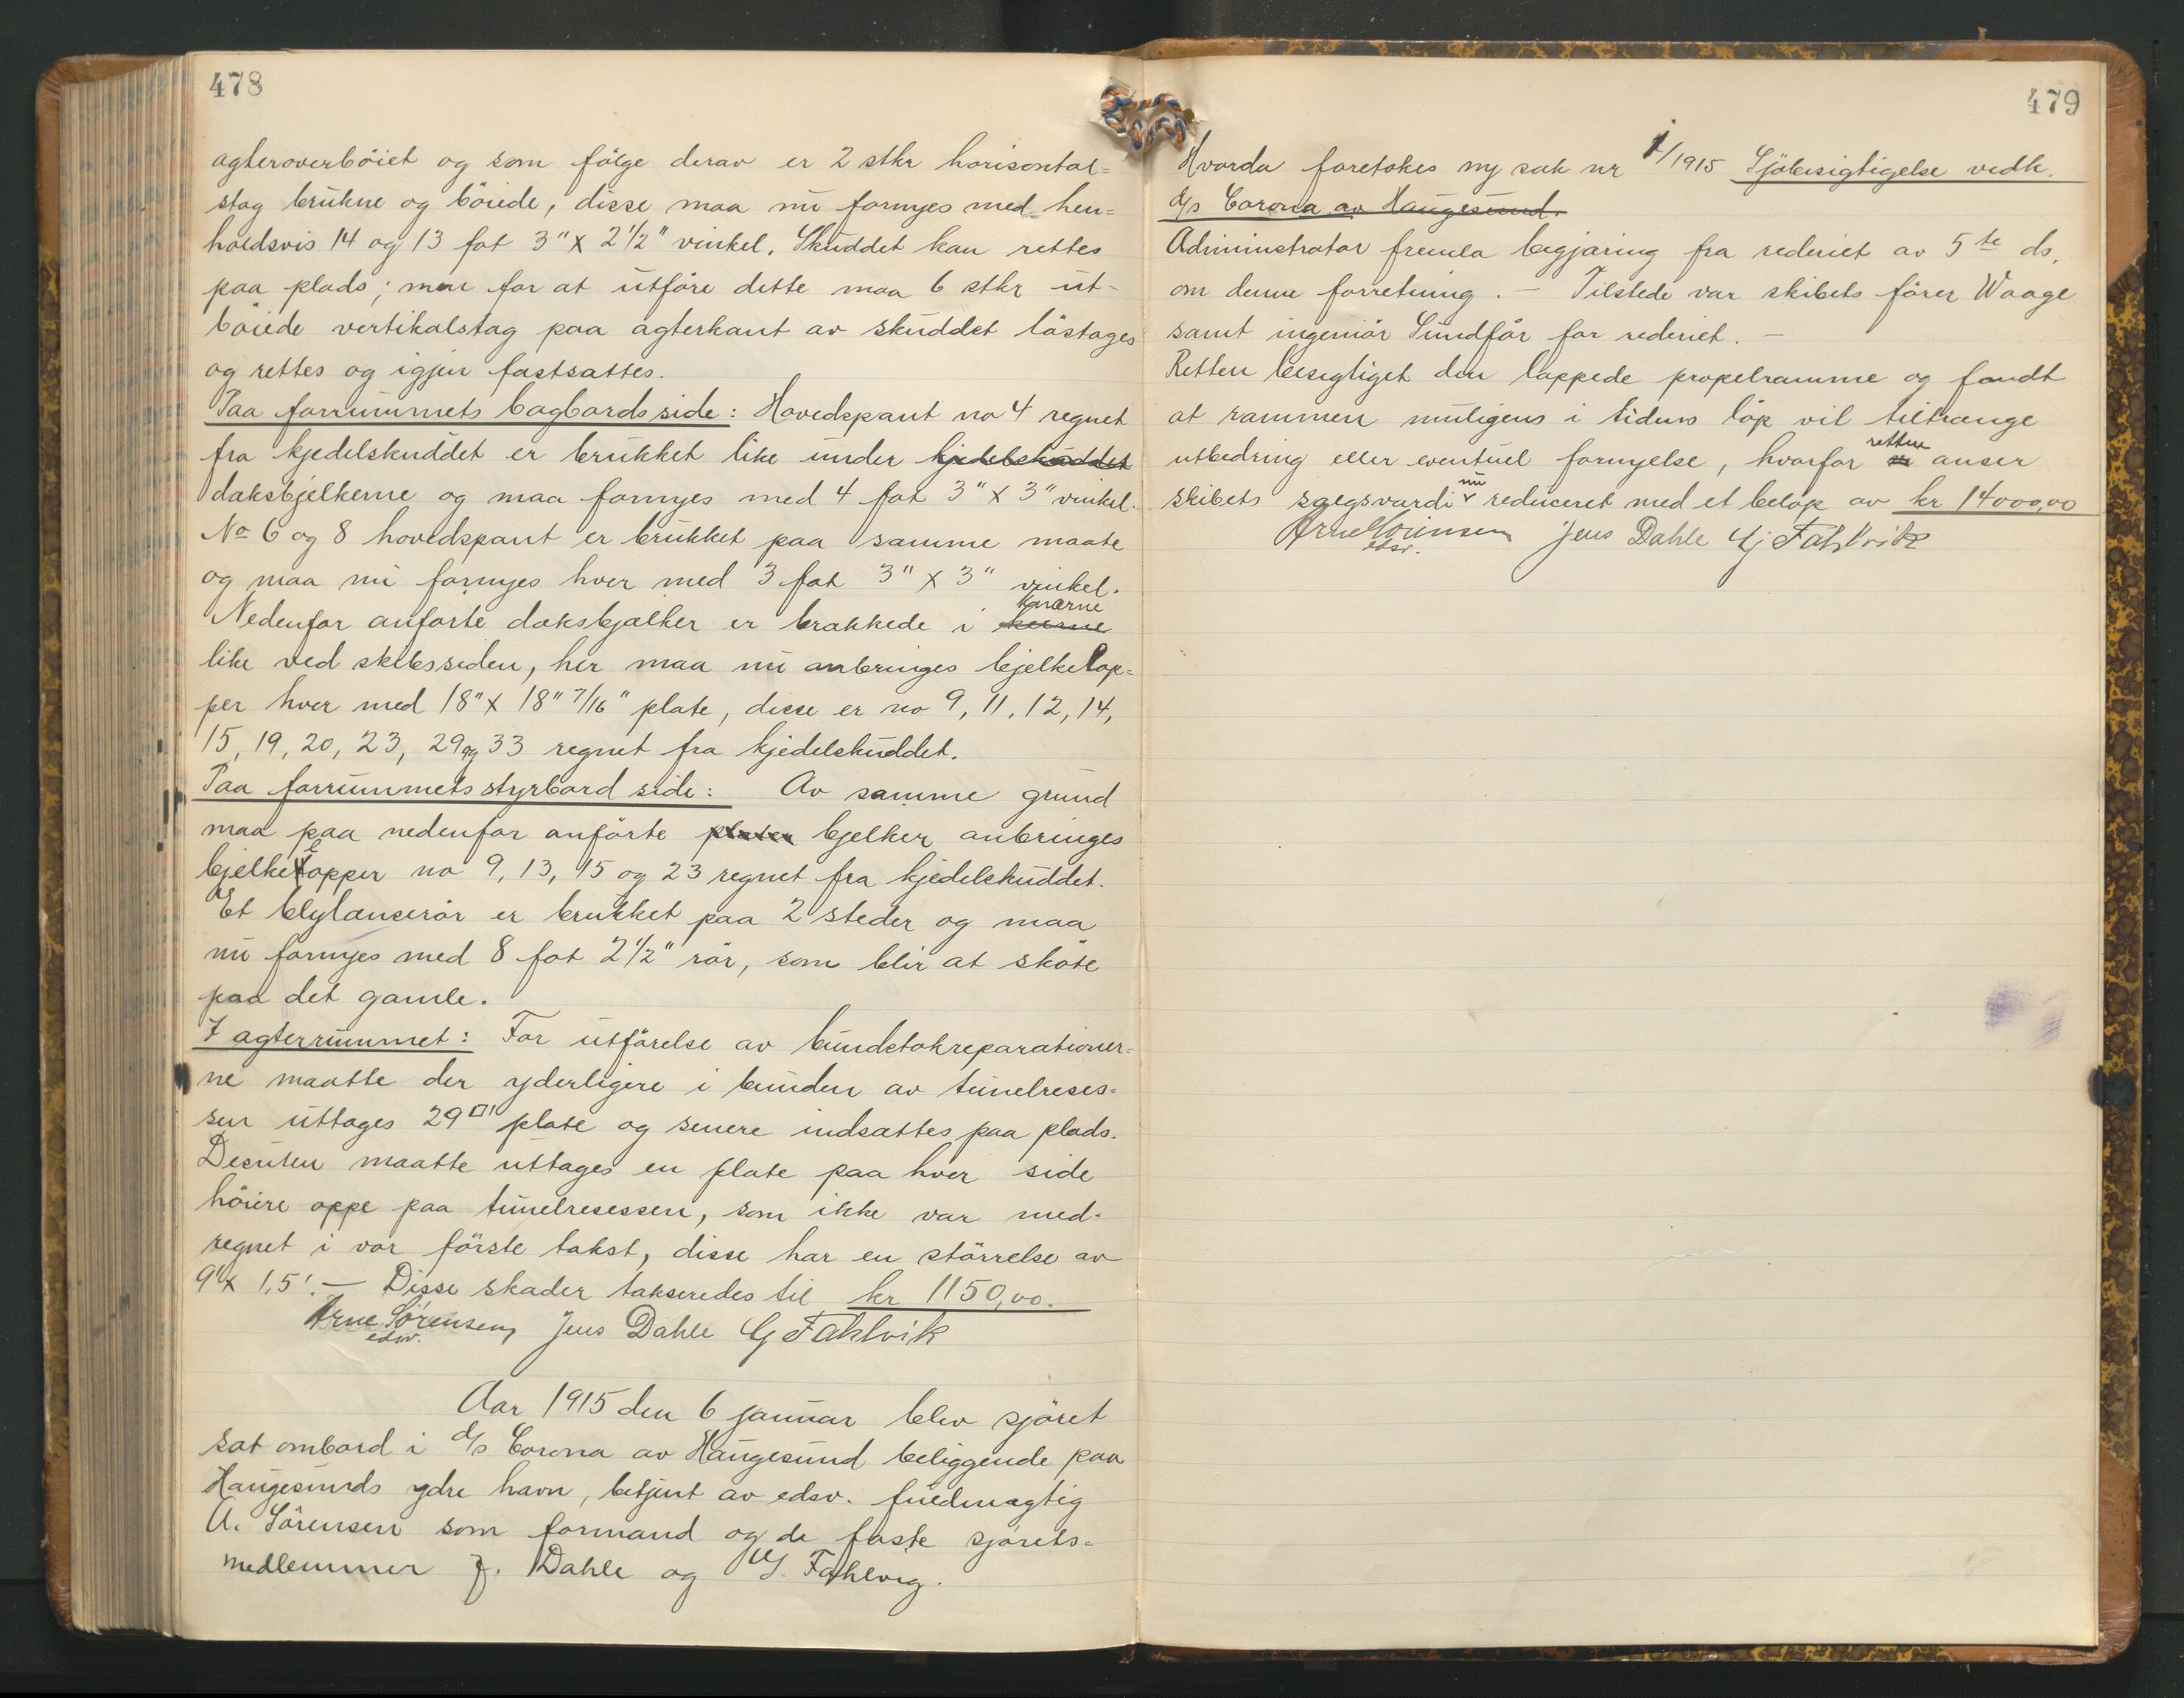 478
agteroverböiet og som fölge derav er 2 stkr horisontal=
stag brukne og böiede, disse maa nu fornyes med hen=
holdsvis 14 og 13 fot 3" x 2 1/2" vinkel. Skuddet kan rettes
paa plads; men for at utföre dette maa 6 stkr ut-
böiede vertikalstag paa agterkant av skuddet löstages
og rettes og igjen fastsættes.
Paa forrummets bagbords side: Hovedspant no 4 regnet
fra kjedelskuddet er brukket like under kjedelskuddet
dæksbjelkerne og maa fornyes med 4 fot 3" x 3" vinkel.
No 6 og 8 hovedspant er brukket paa samme maate
og maa nu fornyes hver med 3 fot 3" x 3" vinkel.
knærne
Nedenfor anförte dæksbjælker er brækkede i
like ved skibssiden, her maa nu anbringes bjelkelap=
per hver med 18" x 18" 7/16" plate, disse er no 9, 11, 12, 14,
15, 19, 20, 23, 29 og 33 regnet fra kjedelskuddet.
Paa forrummets styrbord side: Av samme grund
maa paa nedenfor anförte plater bjelker anbringes
bjelkelapper no 9, 13, 15 og 23 regnet fra kjedelskuddet.
Et blylænserör er brukket paa 2 steder og maa
nu fornyes med 8 fot 2 1/2" rör, som blir at sköte
paa det gamle.
I agterrummet: For utförelse av bundstokreparationer=
ne maatte der yderligere i bunden av tunelreces=
sen uttages 29 □' plate og senere indsættes paa plads.
Desuten maatte uttages en plate paa hver side
höiere oppe paa tunelrecessen, som ikke var med-
regnet i vor förste takst, disse har en störrelse av
9' x 1,5'. — Disse skader takseredes til kr 1150,00.
Arne Sörensen Jens Dahle G Fahlvik
edsv.
Aar 1915 den 6 januar blev sjöret
sat ombord i d/s Corona av Haugesund beliggende paa
Haugesunds ydre havn, betjent av edsv. fuldmægtig
A. Sörensen som formand og de faste sjörets=
medlemmer J. Dahle og G. Fahlvig.
479
Hvorda foretokes ny sak nr 1/1915 Sjöbesigtigelse vedk.
d/s Corona av Haugesund.
Administrator fremla begjæring fra rederiet av 5te ds.
om denne forretning. — Tilstede var skibets förer Waage
samt ingeniör Sundför for rederiet. —
Retten besigtiget den lappede propelramme og fandt
at rammen muligens i tidens löp vil tiltrænge
retten
utbedring eller eventuel fornyelse, hvorfor anser
nu
skibets salgsværdi reduceret med et belöp av kr 14000,00
Arne Sörensen Jens Dahle G Fahlvik
edsv.